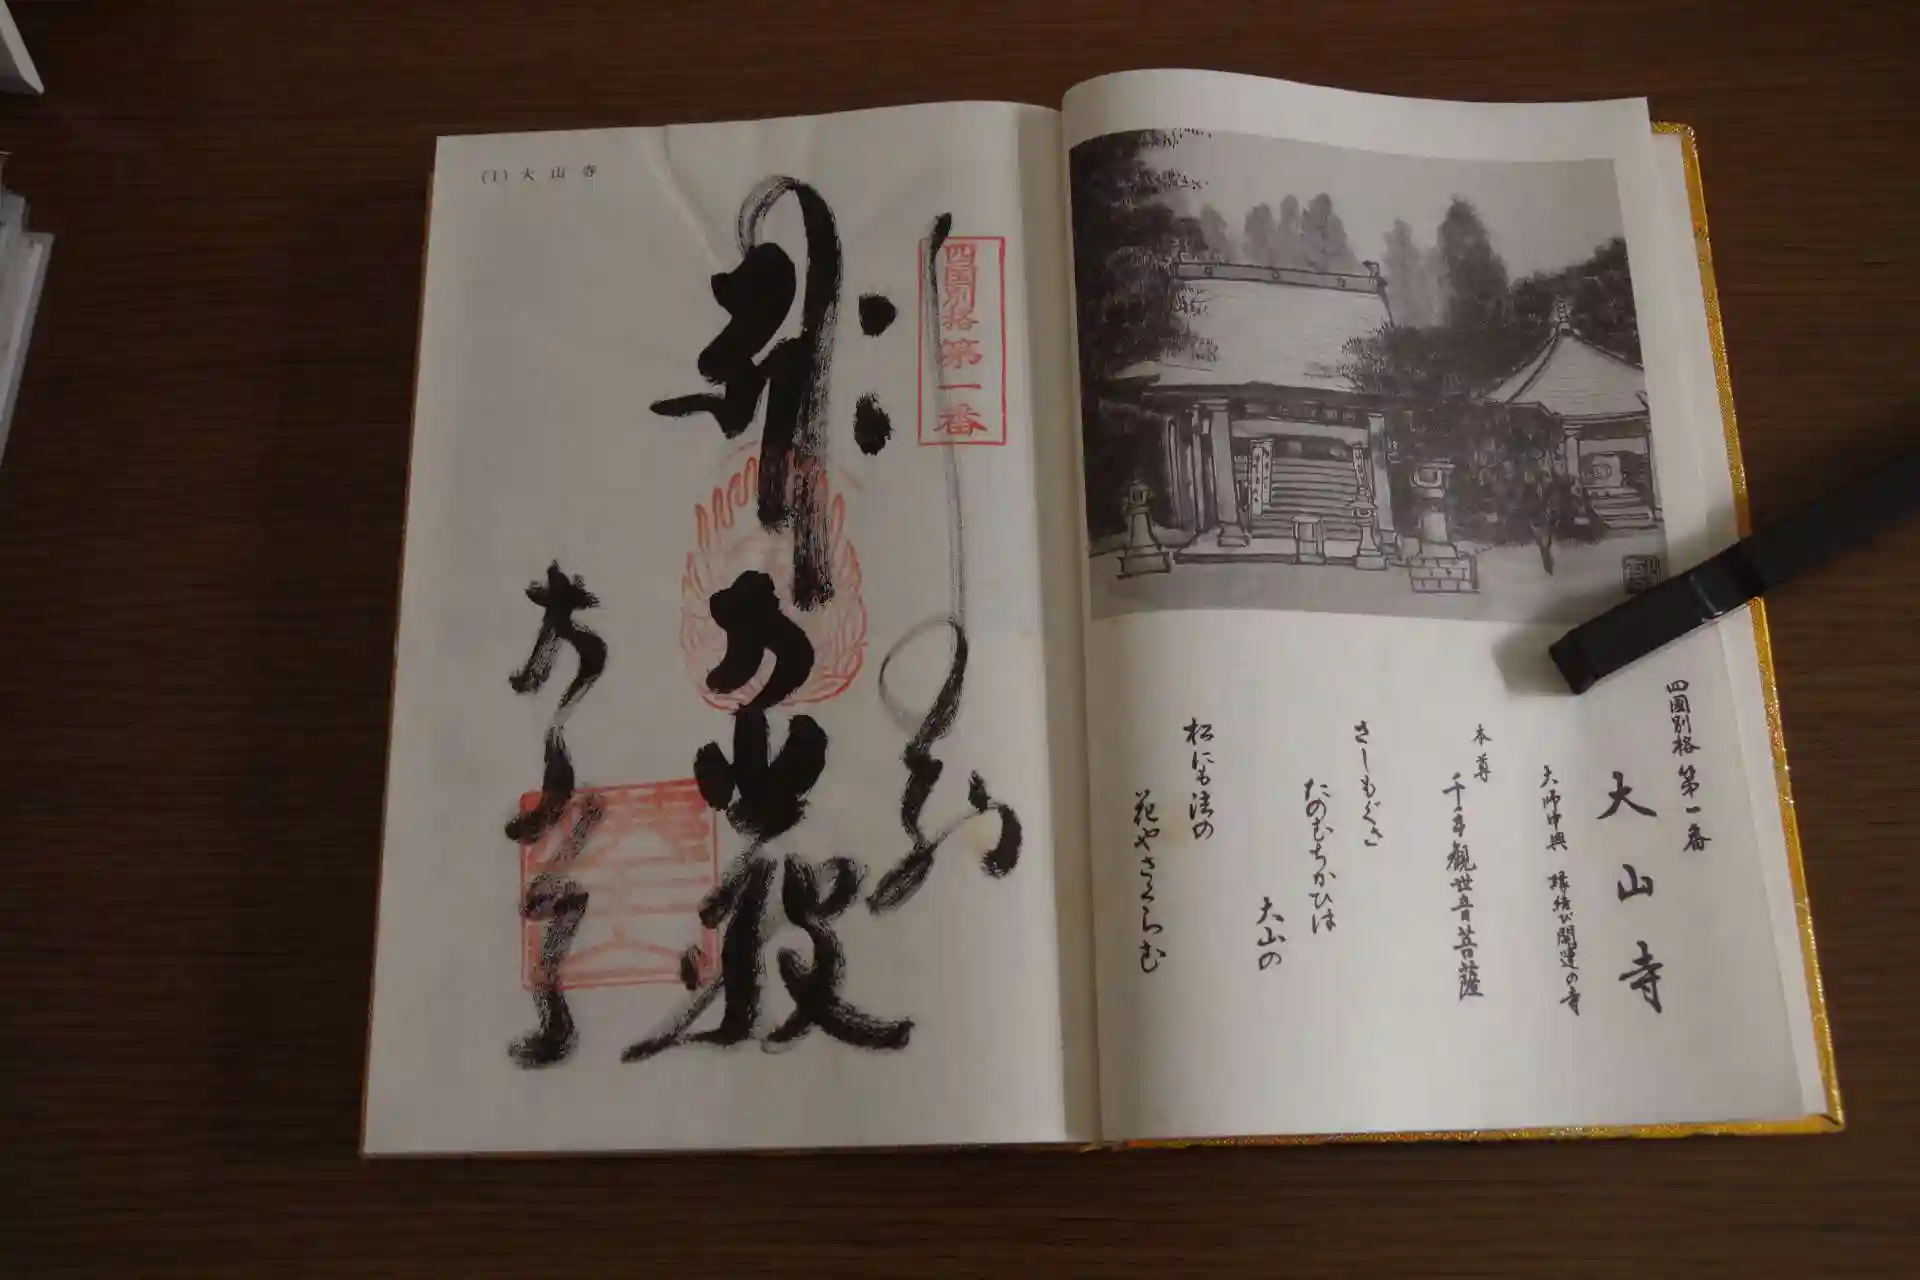 四國別格 第一番
大山寺
大師中興 縁結び開運の寺
本尊
千手観世音菩薩
さしもぐさ
たのむちかひは
大山の
松にも法の
花やさくらむ
(1) 大山寺
四国別格 第一番
奉
大山寺